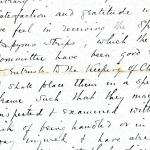 satisfaction and gratitude w
we feel in receiving the Sp
Papyrus strips, which the
Committee have been good
entrust to the keeping of Ch
I shall place them in a spe
frame such that they ma
inspected & examined with
risk of being handled or in
any injury. I have also